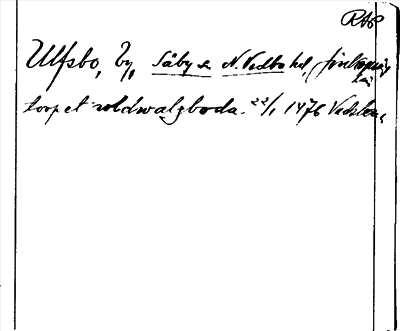 RAP
Ulfsbo, by, Säby sn N. Vedbo hd,
torp et oldwalzboda. 22/1 1476 Vadstena